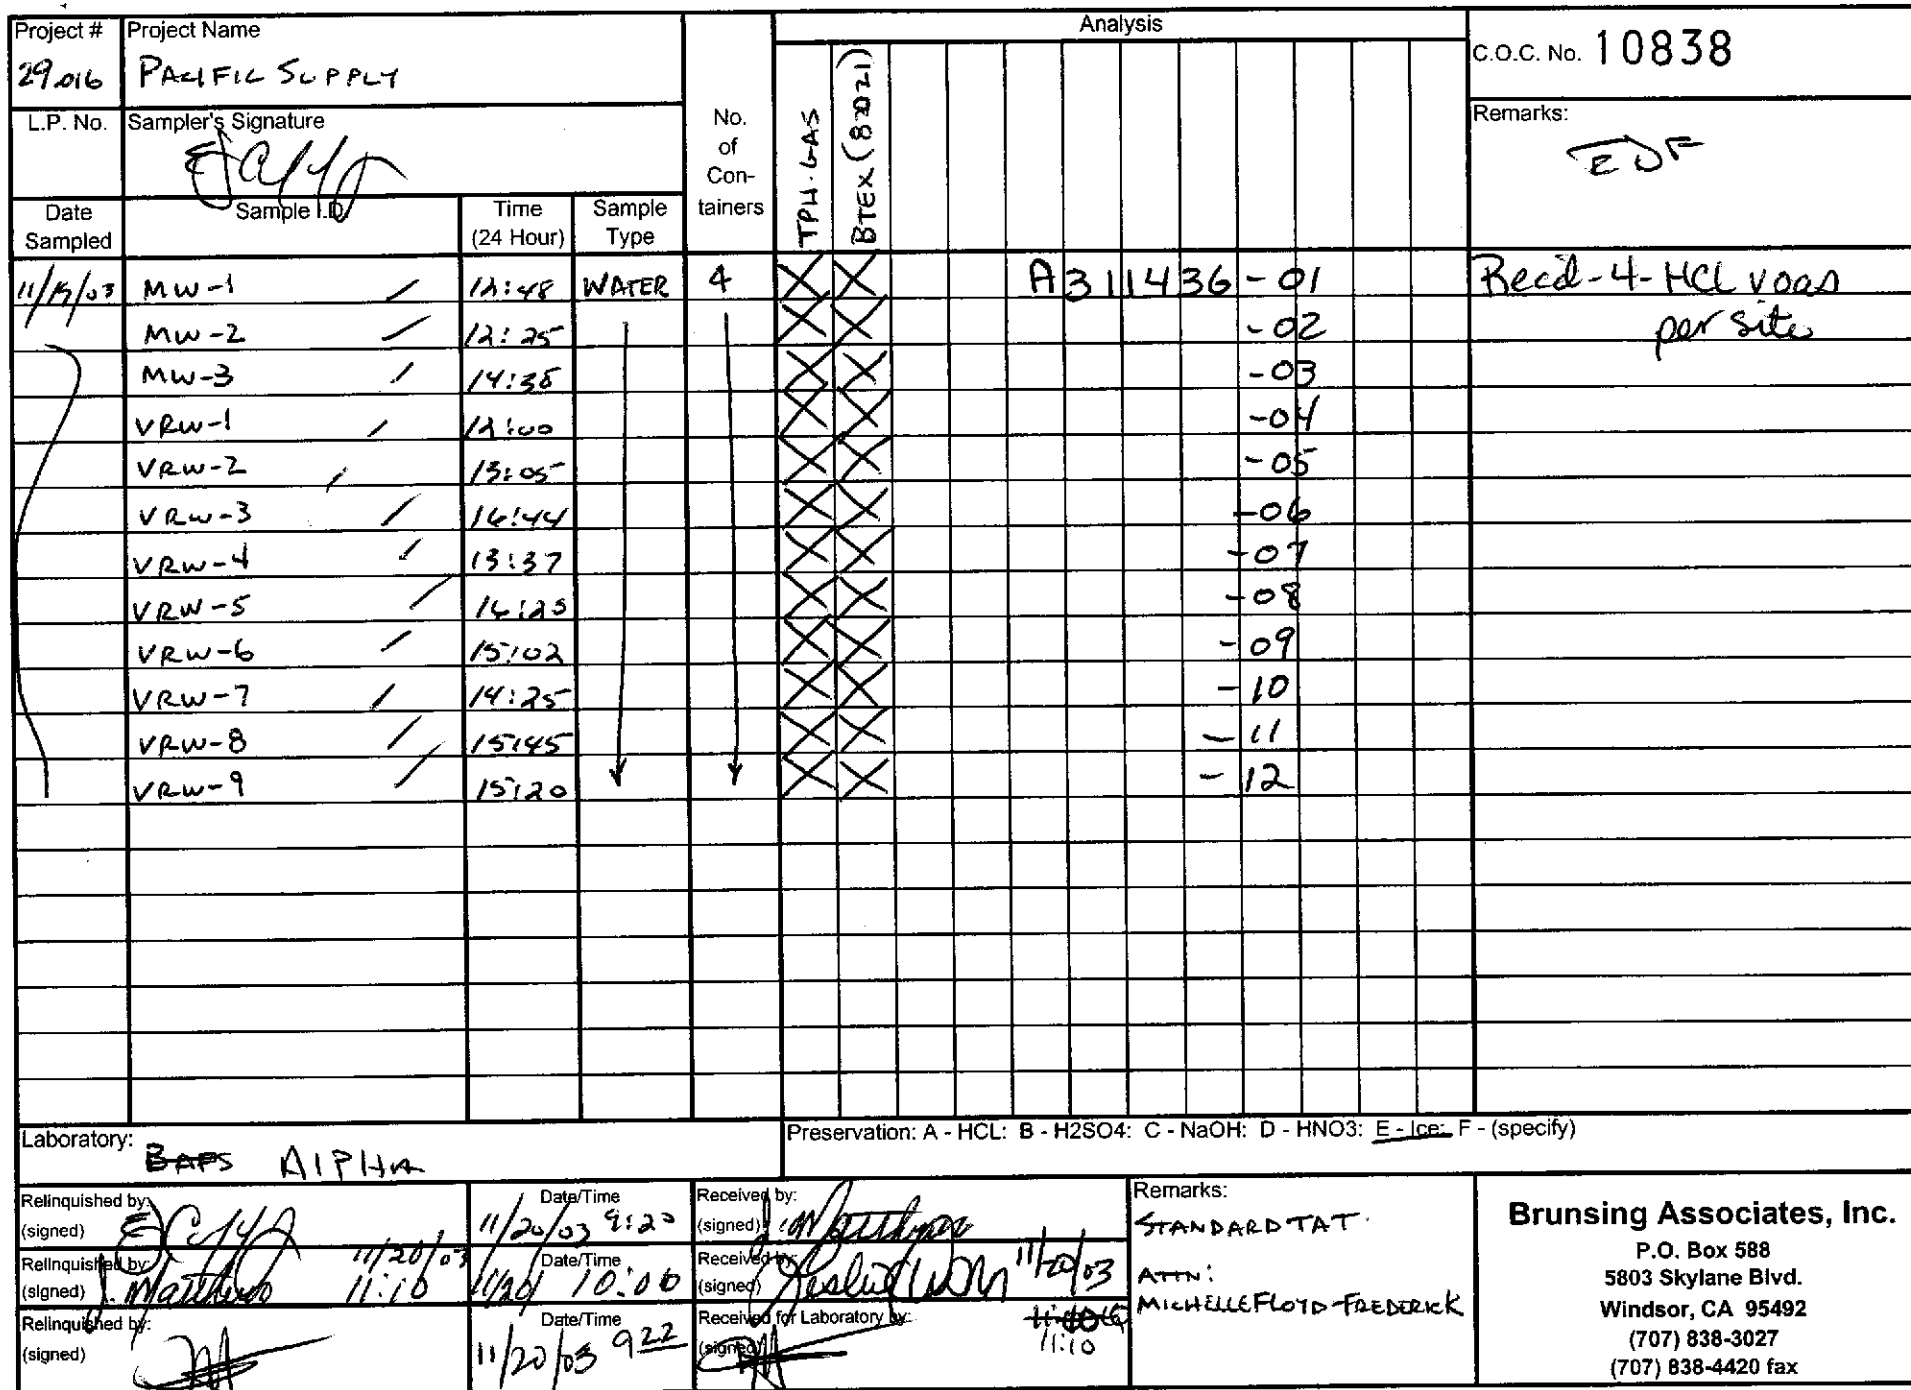 Project # Project Name Analysis
29.016 PACIFIC SUPPLY C.O.C. No. 10838
L.P. No. Sampler's Signature No. of Con-tainers TPH-GAS BTEX (8021) Remarks:
EDF
Date Sampled Sample I.D. Time (24 Hour) Sample Type
MW-1 12:48 WATER 4 X X A311436-01 Recd-4-HCL voas
MW-2 12:25 X X -02 per site
MW-3 X X -03
VRW-1 12:00 X X -04
VRW-2 13:05 X X -05
VRW-3 X X -06
VRW-4 13:37 X X -07
VRW-5 X X -08
VRW-6 15:02 X X -09
VRW-7 14:25 X X -10
VRW-8 15:45 X X -11
VRW-9 15:20 X X -12
Laboratory: BAFS ALPHA Preservation: A - HCL: B - H2SO4: C - NaOH: D - HNO3: E - Ice: F - (specify)
Relinquished by: (signed) Date/Time 11/20/03 Received by: (signed) J. Matthews
Relinquished by: (signed) J. Matthews 11/20/03 11:10 Date/Time 11/20/ 10:00 Received by: (signed) 11/20/03 11:10
Relinquished by: (signed) Date/Time 11/20/03 922 Received for Laboratory by: (signed)
Remarks:
STANDARD TAT.
ATTN:
MICHELLE FLOYD-FREDERICK
Brunsing Associates, Inc.
P.O. Box 588
5803 Skylane Blvd.
Windsor, CA 95492
(707) 838-3027
(707) 838-4420 fax